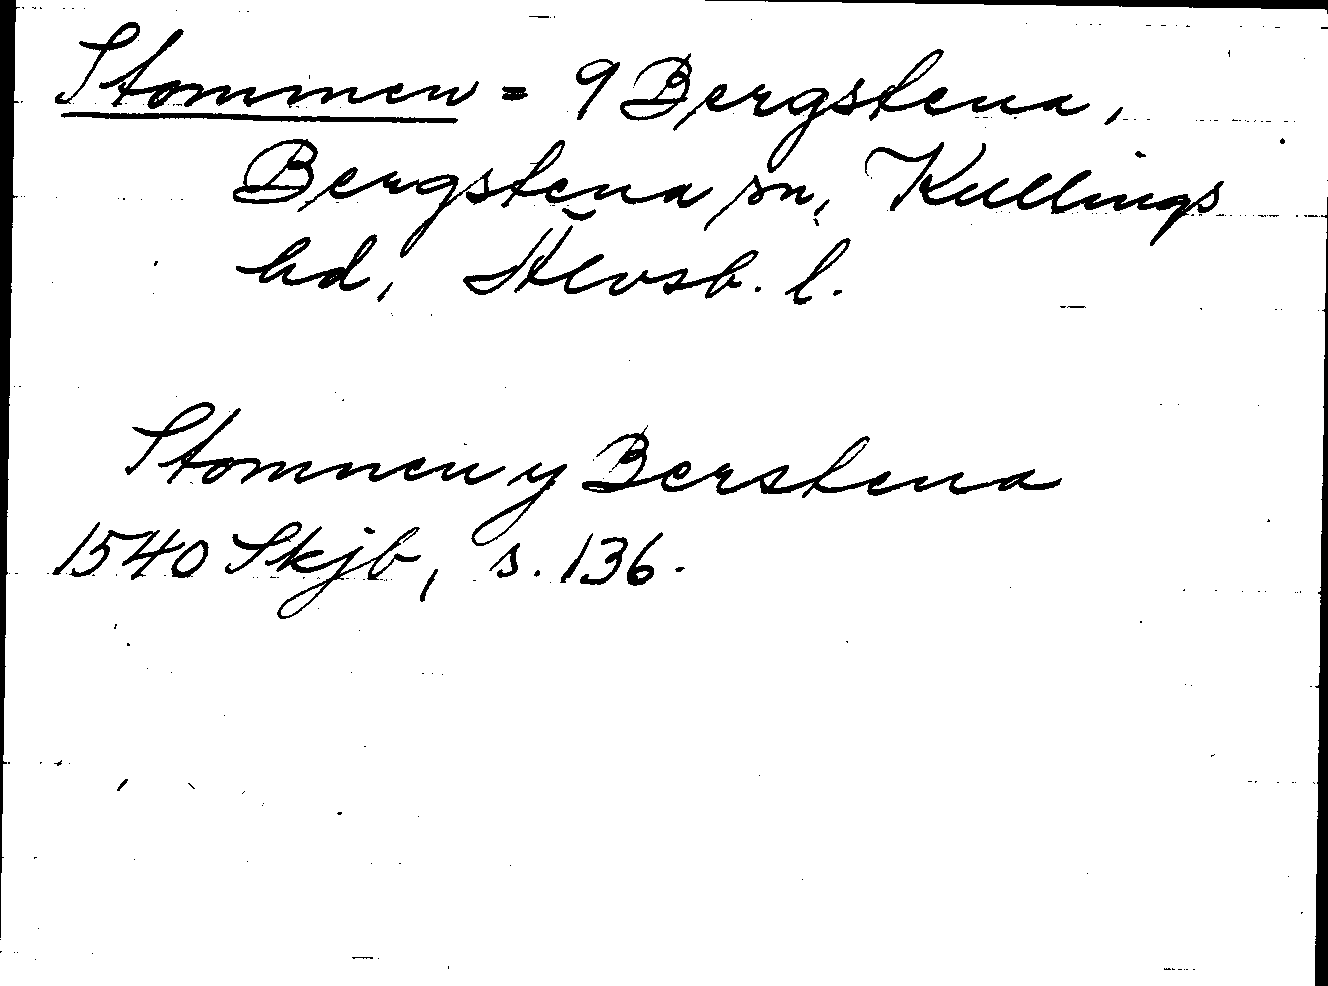 Stommen = 9 Bergstena,
Bergstena sn, Kullings
hd, Älvsb. l.
Stomnen y Berstena
1540 Skjb, s. 136.